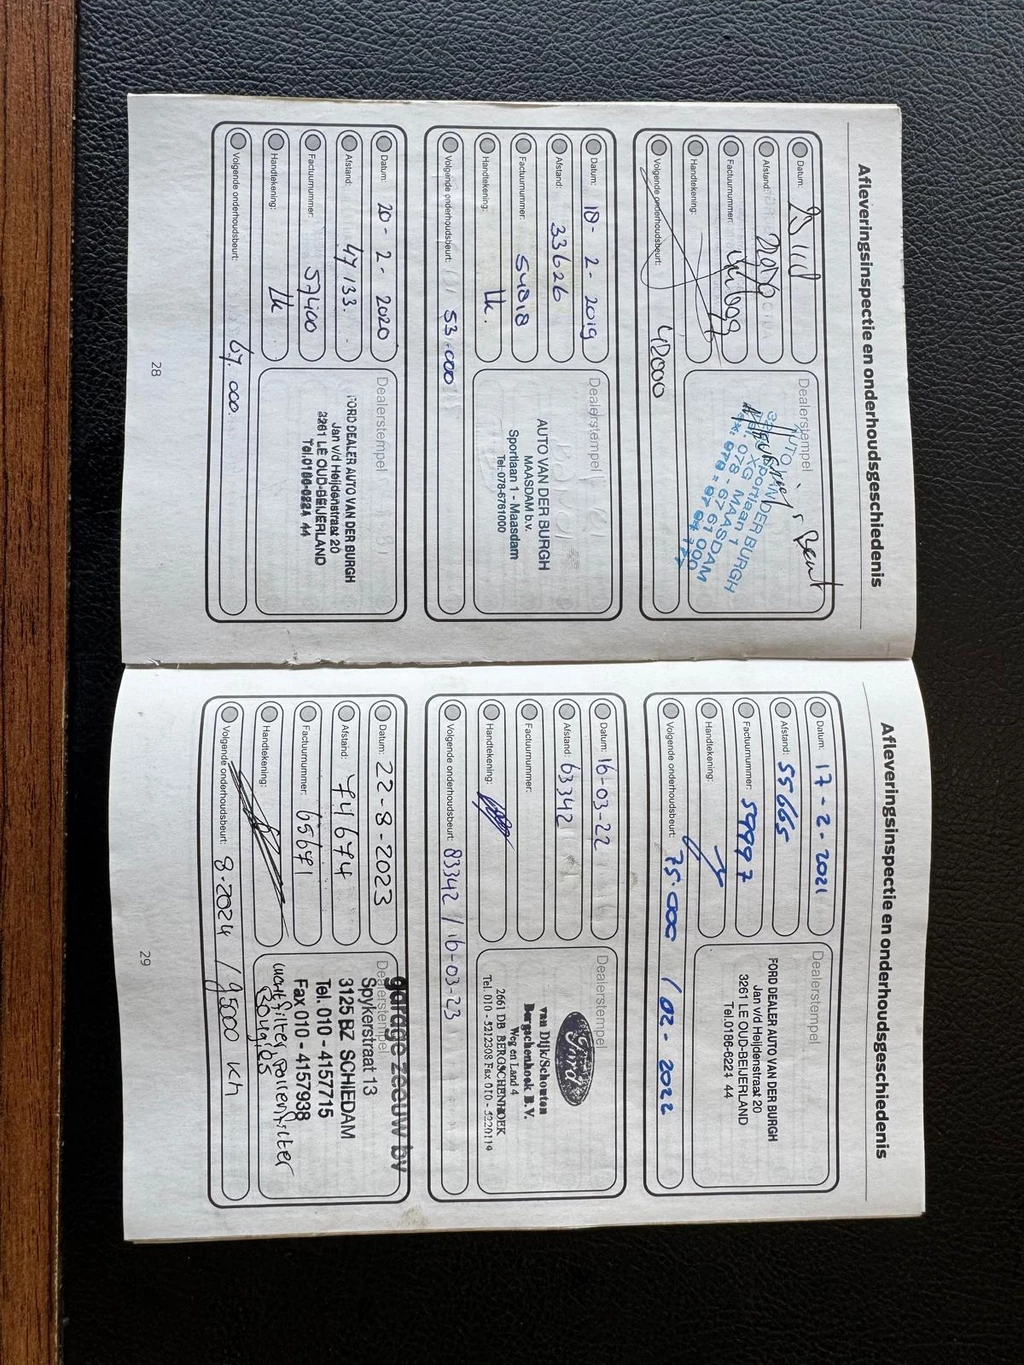 Afleveringsinspectie en onderhoudsgeschiedenis
Datum:
Afstand:
Factuurnummer:
Handtekening:
Volgende onderhoudsbeurt: 42000
Dealerstempel
AUTO VAN DER BURGH
Sportlaan 1
MAASDAM
078 - 67 61 000
Datum: 18-2-2019
Afstand: 33626
Factuurnummer: 54818
Handtekening:
Volgende onderhoudsbeurt: 53.000
Dealerstempel
AUTO VAN DER BURGH
MAASDAM b.v.
Sportlaan 1 - Maasdam
Tel: 078-6761000
Datum: 20-2-2020
Afstand: 47133.
Factuurnummer: 57400
Handtekening:
Volgende onderhoudsbeurt: 67.000
Dealerstempel
FORD DEALER AUTO VAN DER BURGH
Jan v/d Heijdenstraat 20
3261 LE OUD-BEIJERLAND
Tel.0186-6224 44
28
Afleveringsinspectie en onderhoudsgeschiedenis
Datum: 17-2-2021
Afstand: 55665
Factuurnummer: 59997
Handtekening:
Volgende onderhoudsbeurt: 75.000 / 02-2022
Dealerstempel
FORD DEALER AUTO VAN DER BURGH
Jan v/d Heijdenstraat 20
3261 LE OUD-BEIJERLAND
Tel.0186-6224 44
Datum: 16-03-22
Afstand: 63342
Factuurnummer:
Handtekening:
Volgende onderhoudsbeurt: 83342 / 16-03-23
Dealerstempel
Ford
van Dijk/Schouten
Bergschenhoek B.V.
Weg en Land 4
2661 DB BERGSCHENHOEK
Tel. 010 - 5212208 Fax 010 - 5220114
Datum: 22-8-2023
Afstand: 74674
Factuurnummer: 65671
Handtekening:
Volgende onderhoudsbeurt: 8-2024 / 95000 km
Dealerstempel
garage zeeuw bv
Spykerstraat 13
3125 BZ SCHIEDAM
Tel. 010 - 4157715
Fax 010 - 4157938
luchtfilter, pollenfilter
Bougies
29